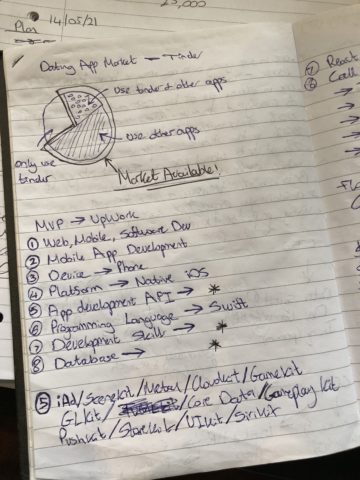 25,000
Plan 14/05/21
Dating App Market - Tinder
use tinder & other apps
use other apps
only use
tinder
Market Available!
MVP → UpWork
① Web, Mobile, Software Dev
② Mobile App Development
③ Device → Phone
④ Platform → Native iOS
⑤ App development API → *
⑥ Programming Language → Swift
⑦ Development Skill → *
⑧ Database → *
⑤ iAd/Scenekit/Metal/Cloudkit/Gamekit
GLkit/ /Core Data/Gameplay kit
Pushkit/Storekit/UIkit/Sirikit
⑦ React
⑧ Call